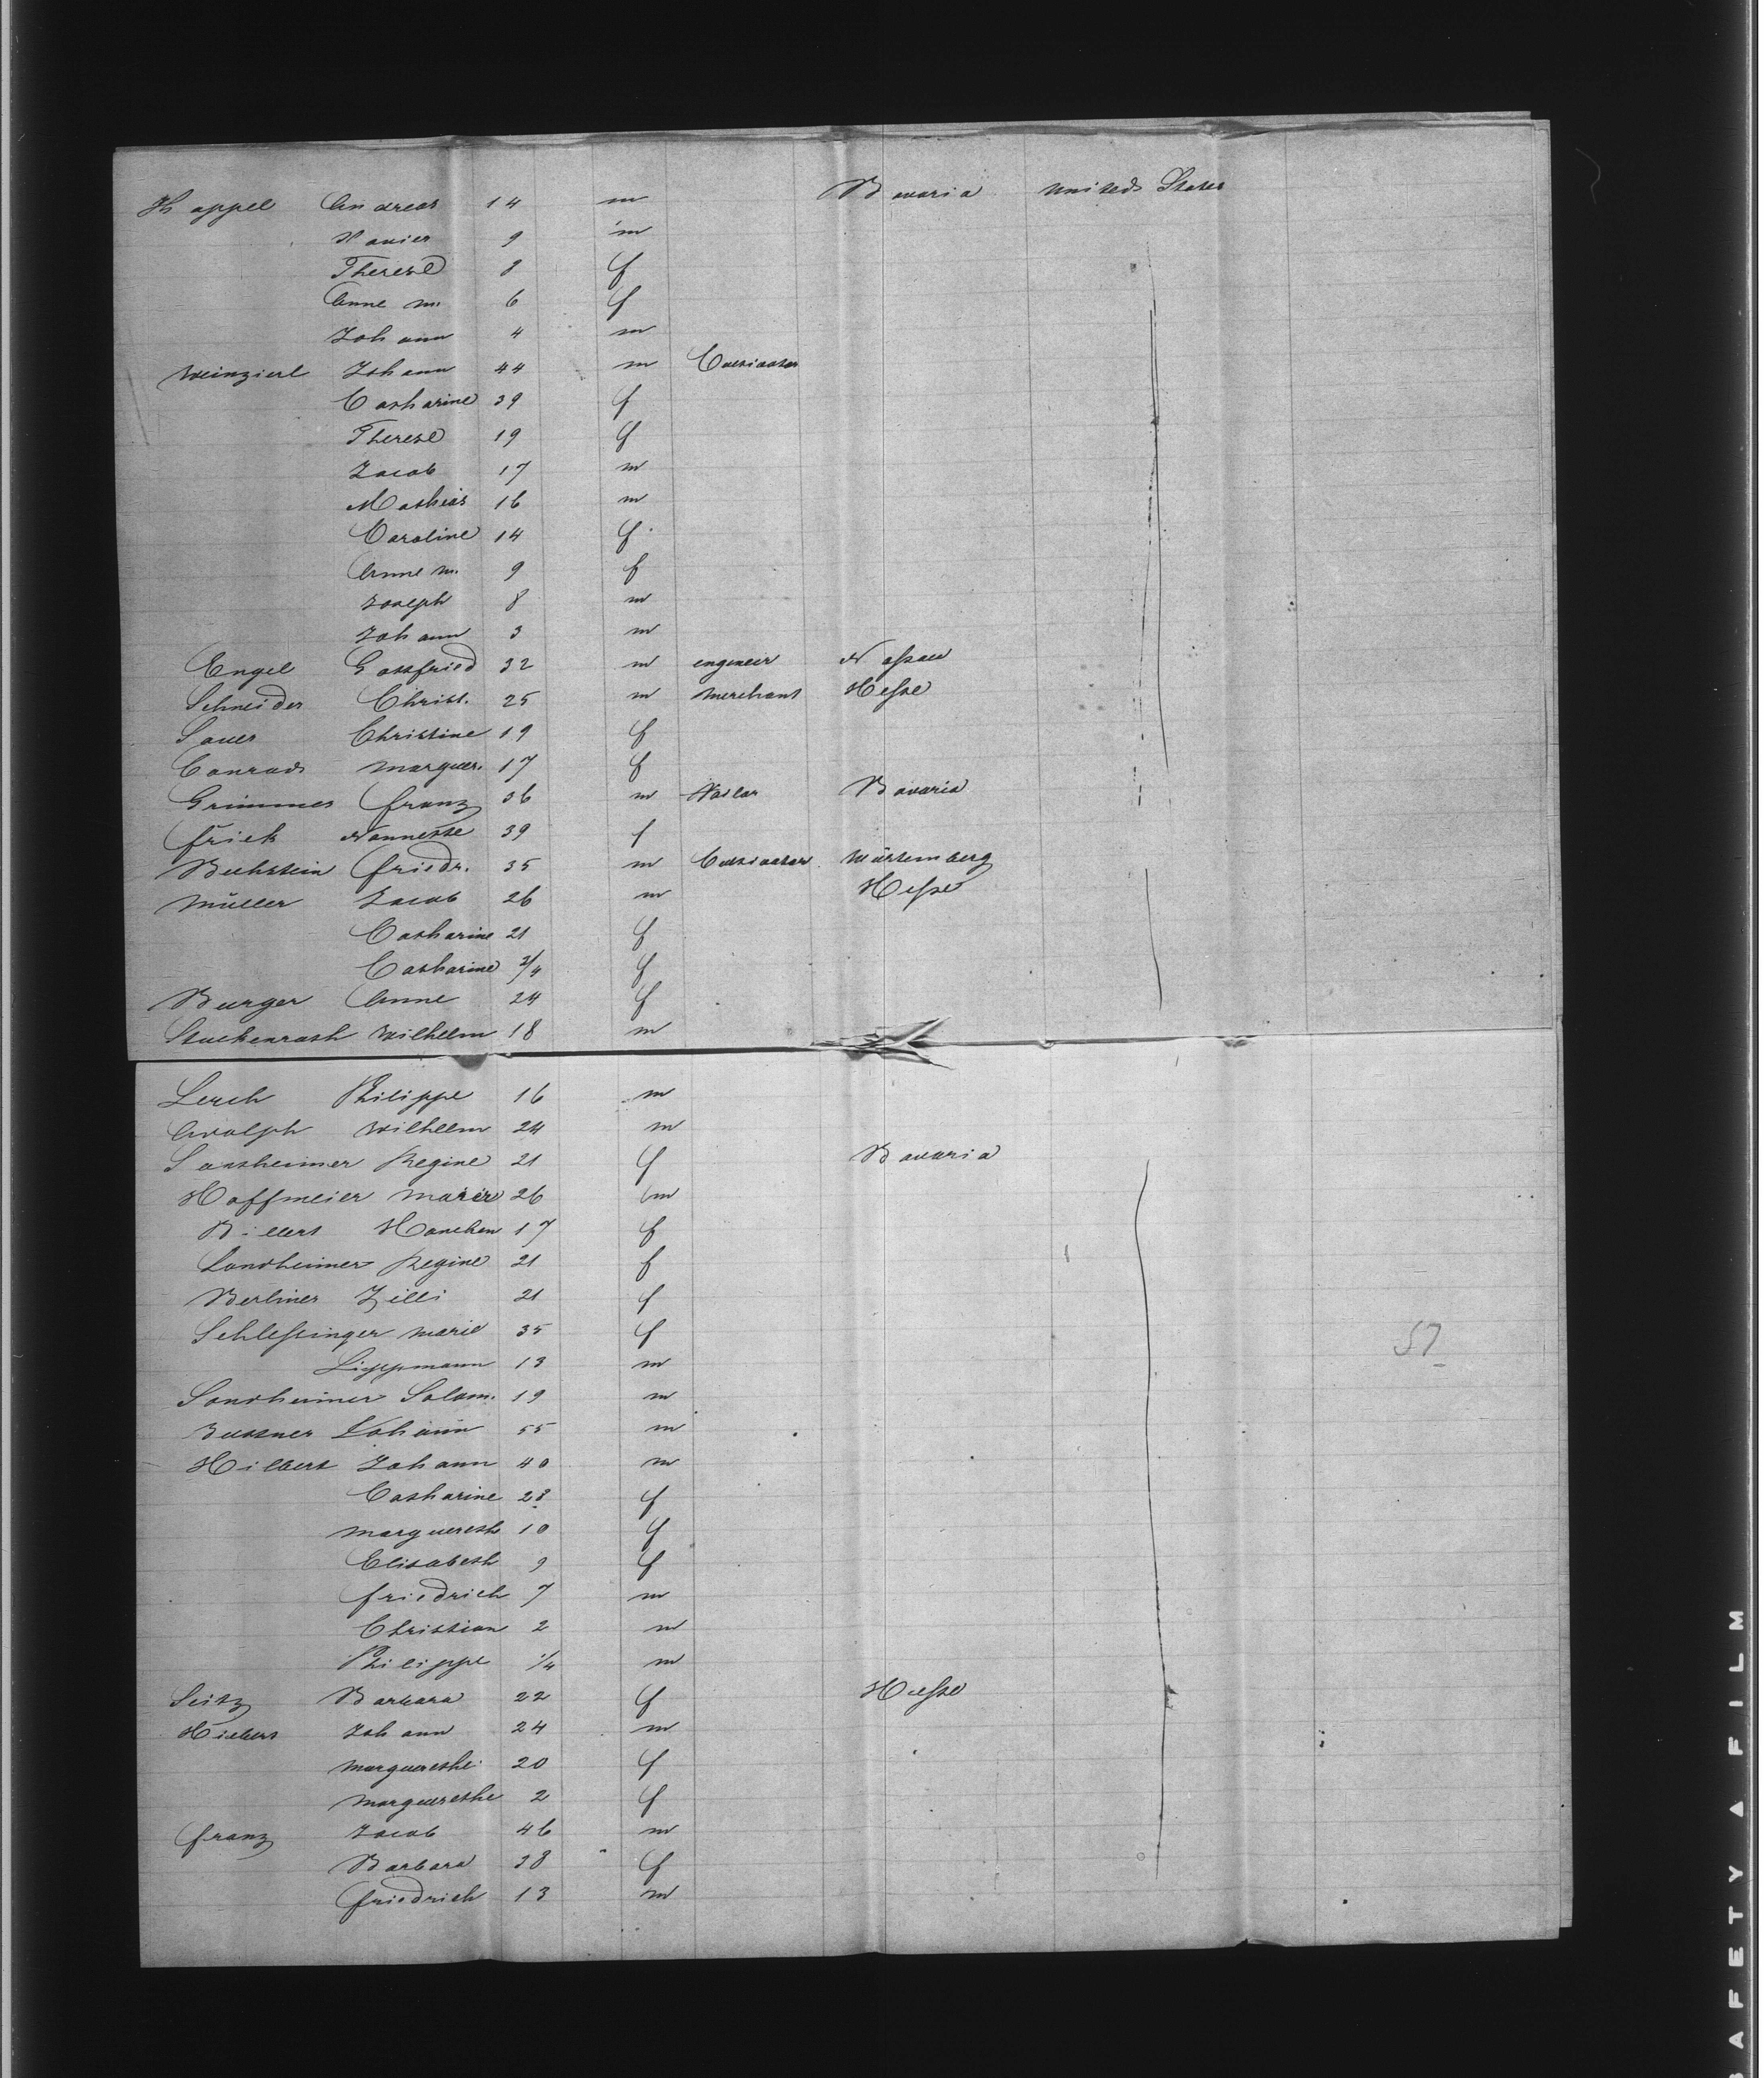 Happel Andreas 14 m Bavaria United States
Xavier 9 m
Therese 8 f
Anne M. 6 f
Johann 4 m
Weinzierl Johann 44 m Cultivator
Catharine 39 f
Therese 19 f
Jacob 17 m
Mathias 16 m
Caroline 14 f
Anne M. 9 f
Joseph 8 m
Johann 3 m
Engel Gottfried 32 m engineer Nassau
Schneider Christ. 25 m merchant Hesse
Sauer Christine 19 f
Conrad Marguer. 17 f
Grimmer Franz 36 m Bavaria
Frick Nannette 39 f
Bechstein Friedr. 35 m Cultivator Würtemberg
Müller Jacob 26 m Hesse
Catharine 21 f
Catharine 3/4 f
Burger Anne 24 f
Stuckenrath Wilhelm 18 m
Lerch Philippe 16 m
Adolph Wilhelm 24 m
Regine 21 f Bavaria
Hoffmeier 26 m
Billert Hanchen 17 f
Sondheimer Regine 21 f
Berliner Zilli 21 f
Schlessinger Marie 35 f
57
Lippmann 13 m
Sondheimer Salom. 19 m
Johann 55 m
Hilbert Johann 40 m
Catharine 28 f
Marguereth 10 f
Elisabeth 9 f
Friedrich 7 m
Christian 2 m
Philippe 1/4 m
Seitz Barbara 22 f Hesse
Johann 24 m
Marguerethe 20 f
Marguerethe 2 f
Franz Jacob 46 m
Barbara 38 f
Friedrich 13 m
SAFETY ▲ FILM